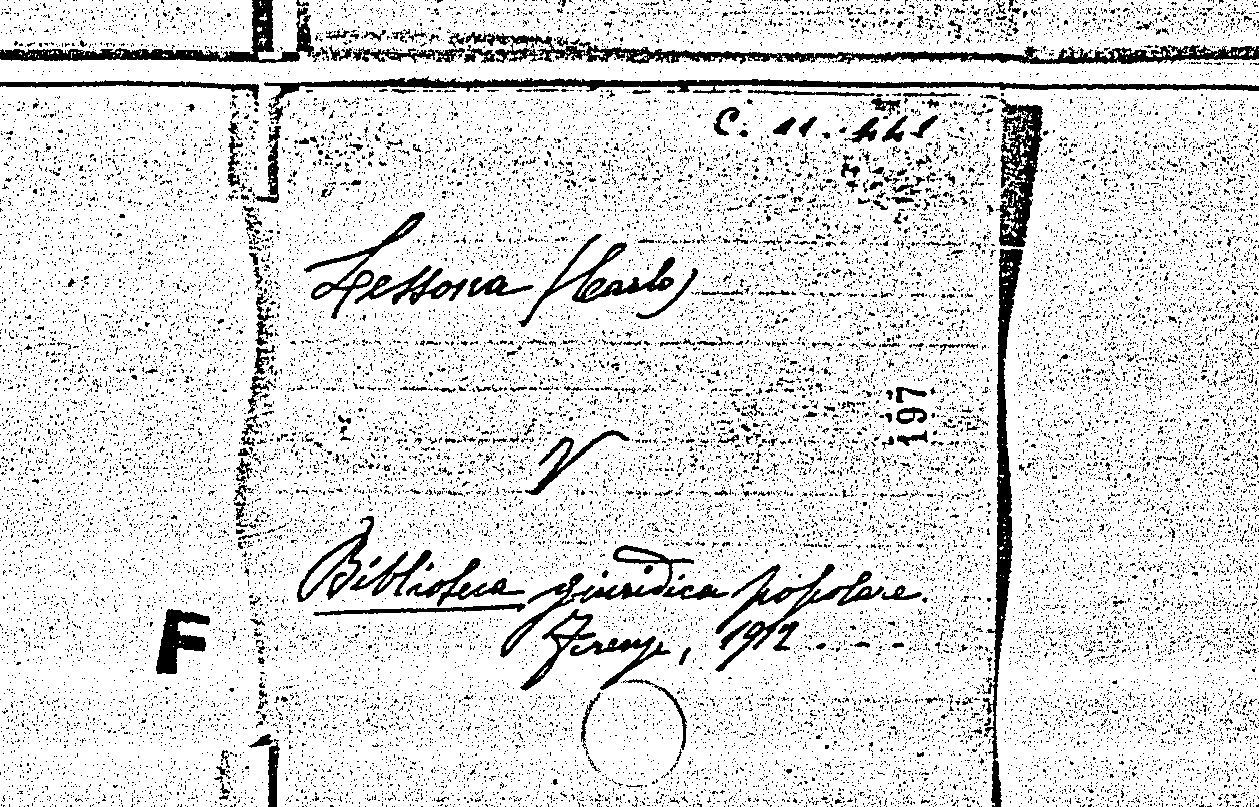 C. 11.
Lessona (Carlo)
197
V
Biblioteca giuridica popolare.
F
Firenze, 1912 . - -